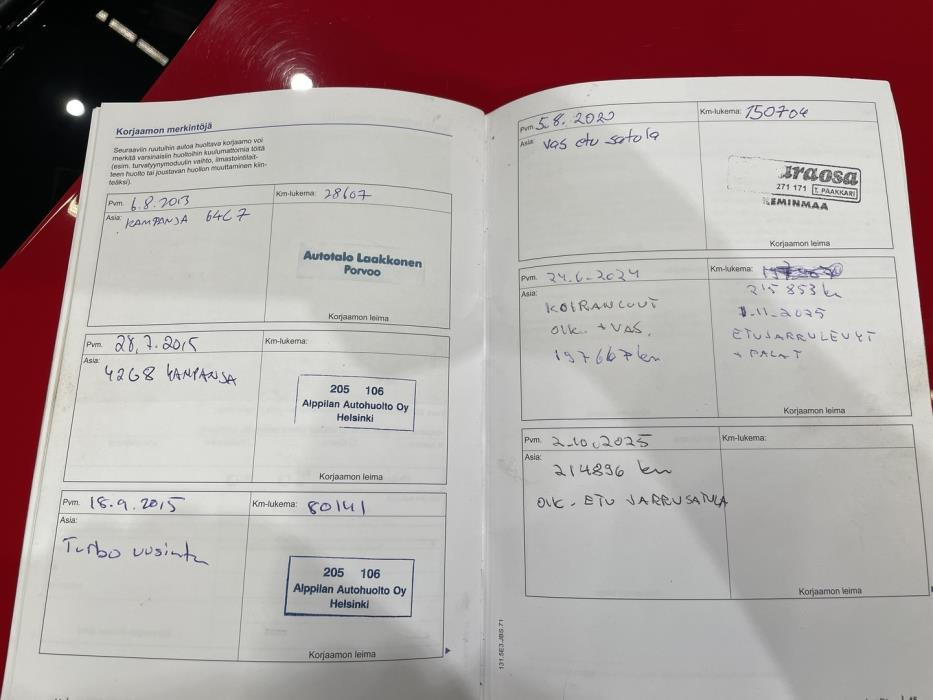 Korjaamon merkintöjä
Seuraaviin ruutuihin autoa huoltava korjaamo voi
merkitä varsinaisiin huoltoihin kuulumattomia töitä
(esim. turvatyynymoduulin vaihto, ilmastointilait-
teen huolto tai joustavan huollon muuttaminen kiin-
teäksi).
Pvm. 6.8.2013 Km-lukema: 28607
Asia: KAMPANJA 64C7
Autotalo Laakkonen
Porvoo
Korjaamon leima
Pvm. 28.7.2015 Km-lukema:
Asia: 42G8 KAMPANJA
205 106
Alppilan Autohuolto Oy
Helsinki
Korjaamon leima
Pvm. 18.9.2015 Km-lukema: 80141
Asia:
Turbo uusinta
205 106
Alppilan Autohuolto Oy
Helsinki
Korjaamon leima
Pvm. 5.8.2020 Km-lukema: 150704
Asia: vas etu satula
araosa
271 171 T. PAAKKARI
KEMINMAA
Korjaamon leima
Pvm. 24.6.2024 Km-lukema:
Asia:
KOIRANLUUT
OIK. + VAS.
197667 km
215 853 km
1.11.2025
ETUJARRULEVYT
+ PALAT
Korjaamon leima
Pvm. 2.10.2025 Km-lukema:
Asia:
214896 km
OIK. ETU JARRUSATULA
Korjaamon leima
131.5E3.JBS.71